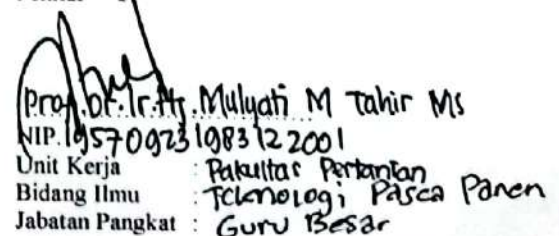 Prof. Dr. Ir. Hj. Mulyati M Tahir Ms
NIP. 195709231983122001
Unit Kerja : Pakultas Pertanian
Bidang Ilmu : Teknologi Pasca Panen
Jabatan Pangkat : Guru Besar